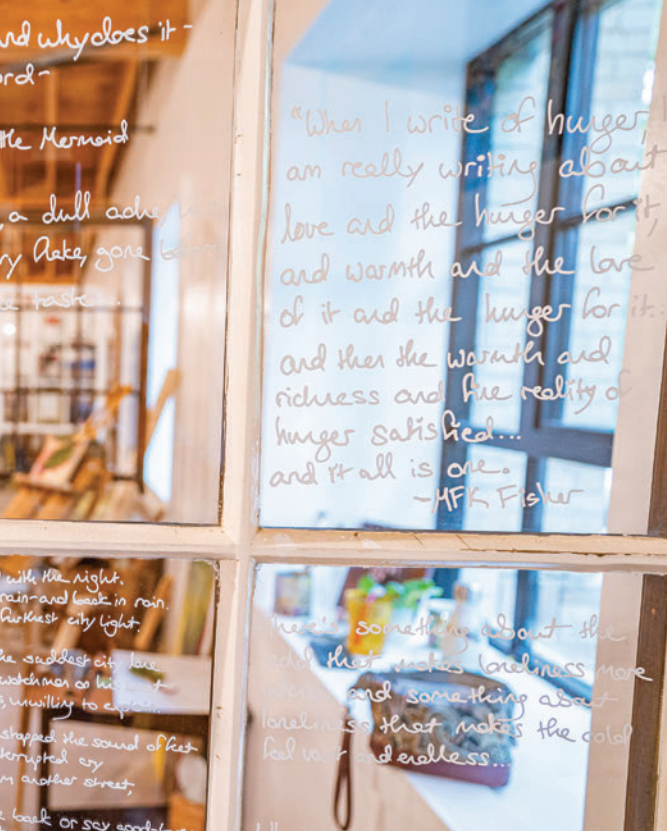 and why does it-
ord-
the Mermaid
, a dull ache
ry flake, gone
taste...
"When I write of hunger,
am really writing about
love and the hunger for it,
and warmth and the love
of it and the hunger for it..
and then the warmth and
richness and fine reality of
hunger satisfied...
and it all is one.
-MFK Fisher
with the night.
rain-and back in rain.
furthest city light.
the saddest city lane
watchman on his beat
unwilling to explain.
stopped the sound of feet
terrupted cry
m another street,
back or say good-bye
There's something about the
cold that makes loneliness more
and something about
loneliness that makes the cold
feel vast and endless...